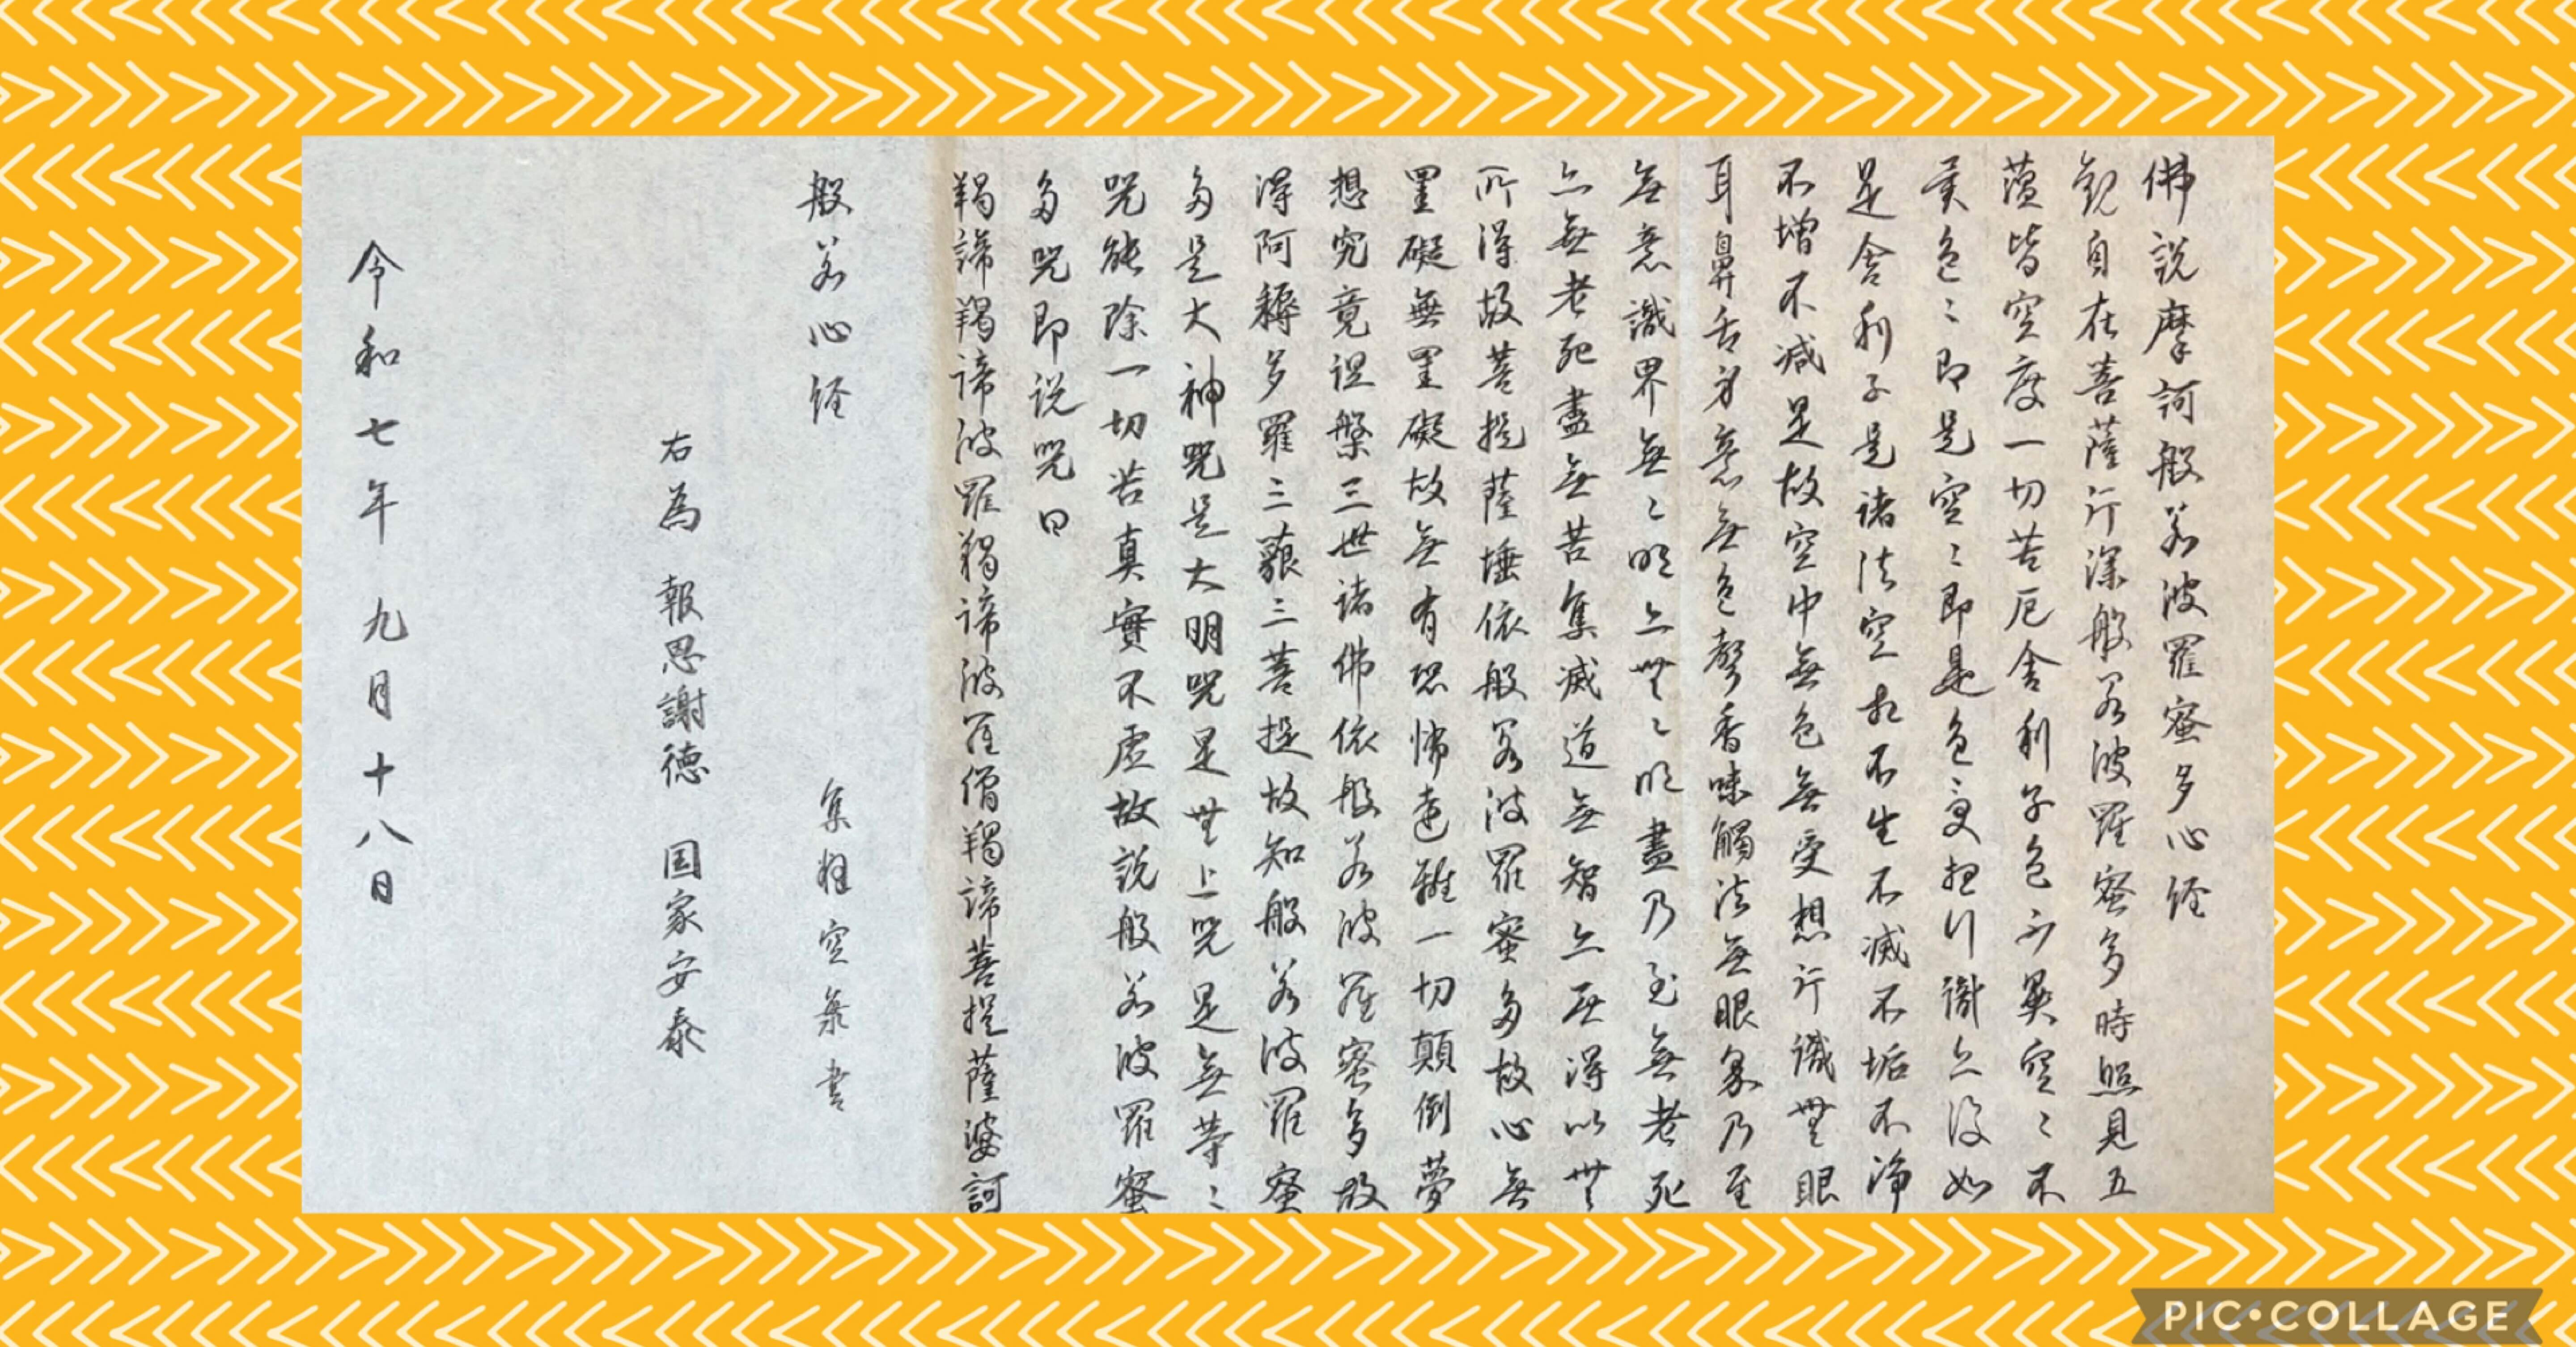 佛説摩訶般若波羅蜜多心経
観自在菩薩行深般若波羅蜜多時照見五
蘊皆空度一切苦厄舎利子色不異空〻不
異色〻即是空〻即是色受想行識亦復如
是舎利子是諸法空相不生不滅不垢不浄
不増不減是故空中無色無受想行識無眼
耳鼻舌身意無色聲香味觸法無眼界乃至
無意識界無〻明亦無〻明盡乃至無老死
亦無老死盡無苦集滅道無智亦無得以無
所得故菩提薩埵依般若波羅蜜多故心無
罣礙無罣礙故無有恐怖遠離一切顛倒夢
想究竟涅槃三世諸佛依般若波羅蜜多故
得阿耨多羅三藐三菩提故知般若波羅蜜
多是大神咒是大明咒是無上咒是無等〻
咒能除一切苦真實不虚故説般若波羅蜜
多咒即説咒曰
羯諦羯諦波羅羯諦波羅僧羯諦菩提薩婆訶
般若心経
集 空 書
右為 報恩謝徳 国家安泰
令和七年 九月十八日
PIC•COLLAGE